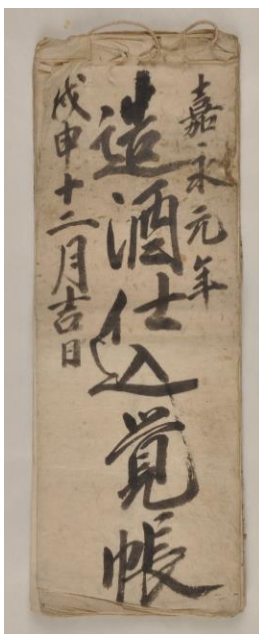 嘉永元年
造酒仕込覚帳
戊申十二月吉日